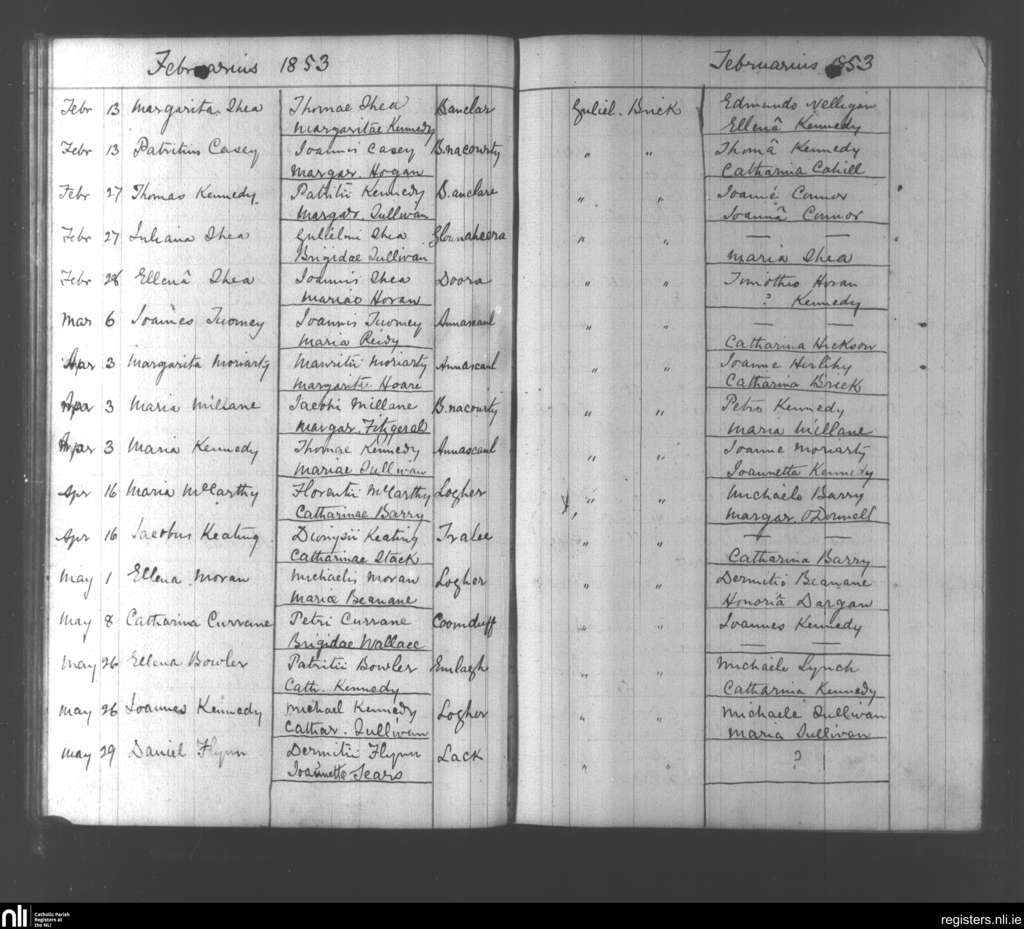 Februarius 1853
Februarius 1853
Febr 13 Margarita Shea Thomae Shea Banclar Guliel. Brick Edmundo Nelligan
Margaritae Kennedy Ellenâ Kennedy
Febr 13 Patritius Casey Ioannis Casey B.nacourty " " Thomâ Kennedy
Margar. Hogan Catharina Cahill
Febr 27 Thomas Kennedy Patritii Kennedy B.anclare " " Ioanne Connor
Margar. Sullivan Ioannâ Connor
Febr 27 Iuliana Shea Gulielmi Shea Glounaheera " " — —
Brigidae Sullivan Maria Shea
Febr 28 Ellenâ Shea Ioannis Shea Doora " " Timotheo Horan
Mariae Horan ? Kennedy
Mar 6 Ioannes Twomey Ioannis Twomey Annascaul " " — —
Maria Reidy Catharina Hickson
Apar 3 Margarita Moriarty Mauritii Moriarty Annascaul " " Ioanne Herlihy
Margarite Hoare Catharina Brick
Apar 3 Maria Millane Iacobi Millane B.nacourty " " Petro Kennedy
Margar. Fitzgerald Maria Millane
Apar 3 Maria Kennedy Thomae Kennedy Annascaul " " Ioanne Moriarty
Mariae Sullivan Joannetta Kennedy
Apr 16 Maria McCarthy Florentii McCarthy Logher " " Michaele Barry
Catharinae Barry Margar. O'Donnell
Apr 16 Jacobus Keating Dionysii Keating Tralee " " — —
Catharinae Stack Catharina Barry
May 1 Ellena Moran Michaelis Moran Logher " " Dermitio Beanane
Mariæ Beanane Honoriâ Dargan
May 8 Catharina Currane Petri Currane Coomduff " " Ioannes Kennedy
Brigidae Wallace — —
May 26 Ellena Bowler Patritii Bowler Emlagh " " Michaele Lynch
Cath. Kennedy Catharina Kennedy
May 26 Ioannes Kennedy Michael Kennedy Logher " " Michaele Sullivan
Cathar. Sullivan Maria Sullivan
May 29 Daniel Flynn Dermitii Flynn Lack " " ?
Ioannetta Sears
nli Catholic Parish
Registers at
the NLI
registers.nli.ie